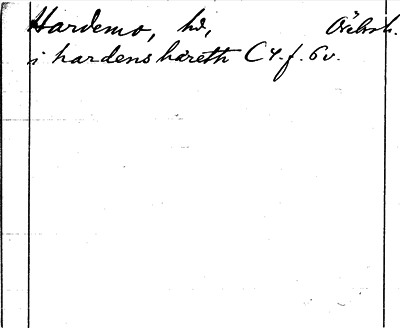 Hardemo, hd, Örebro l.
i hardens häreth C4. f. 6v.